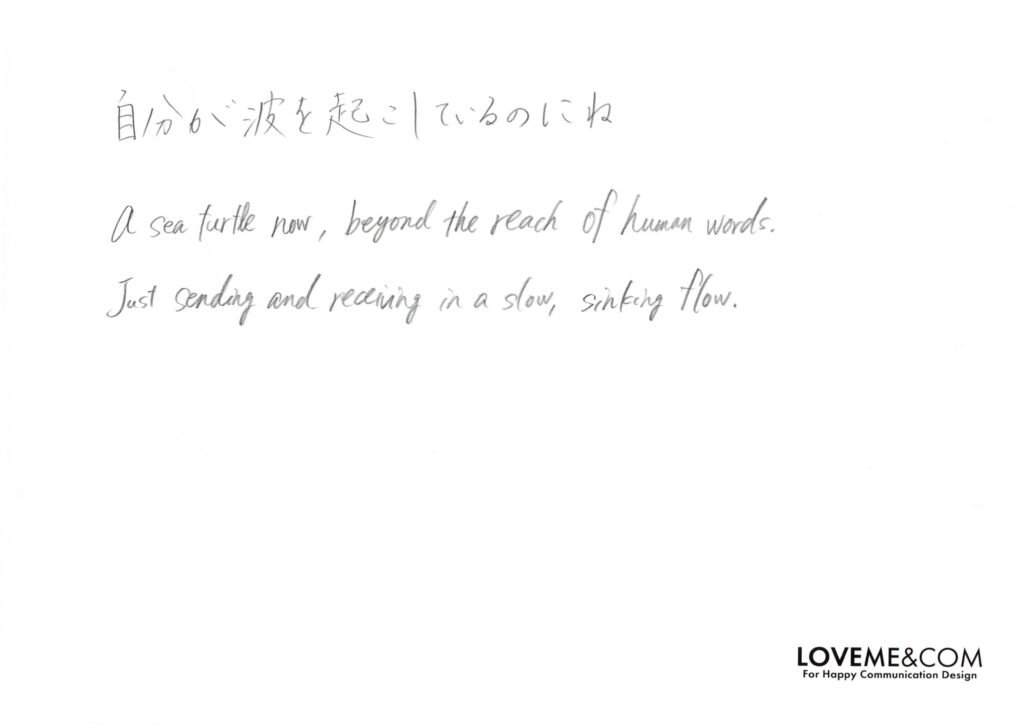 自分が波を起こしているのにね
A sea turtle now, beyond the reach of human words.
Just sending and receiving in a slow, sinking flow.
LOVEME&COM
For Happy Communication Design